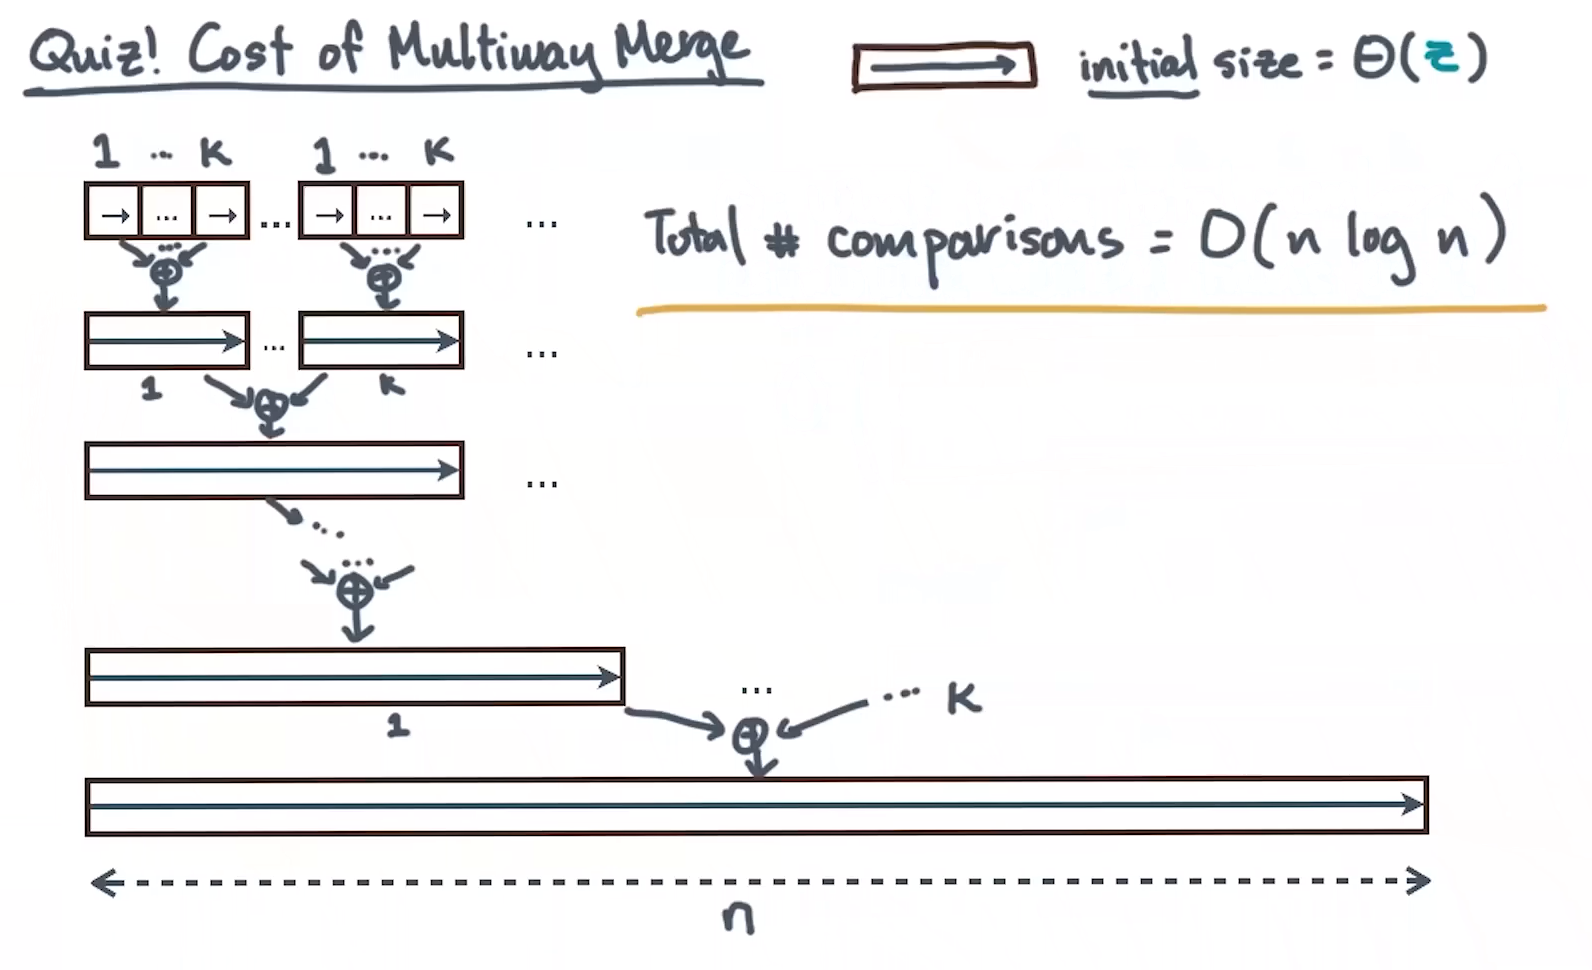 Quiz! Cost of Multiway Merge
initial size = Θ(z)
1 ... k 1 ... k
... ... ... ... ...
Total # comparisons = O(n log n)
... ...
... ...
1 k
...
...
...
... ... k
1
n